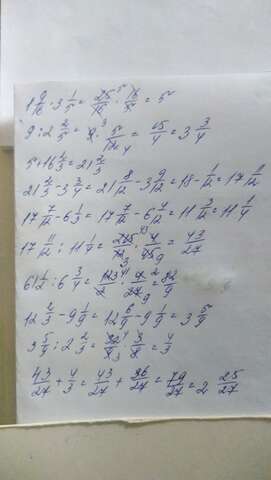 1 9/16 · 3 1/5 = 25/16 · 16/5 = 5
9 : 2 2/5 = 9 · 5/12 = 15/4 = 3 3/4
5 + 16 2/3 = 21 2/3
21 2/3 - 3 3/4 = 21 8/12 - 3 9/12 = 18 - 1/12 = 17 11/12
17 7/12 - 6 1/3 = 17 7/12 - 6 4/12 = 11 3/12 = 11 1/4
17 11/12 : 11 1/4 = 215/12 · 4/45 = 43/27
61 1/2 : 6 3/4 = 123/2 · 4/27 = 82/9
12 2/3 - 9 1/9 = 12 6/9 - 9 1/9 = 3 5/9
3 5/9 : 2 2/3 = 32/9 · 3/8 = 4/3
43/27 + 4/3 = 43/27 + 36/27 = 79/27 = 2 25/27